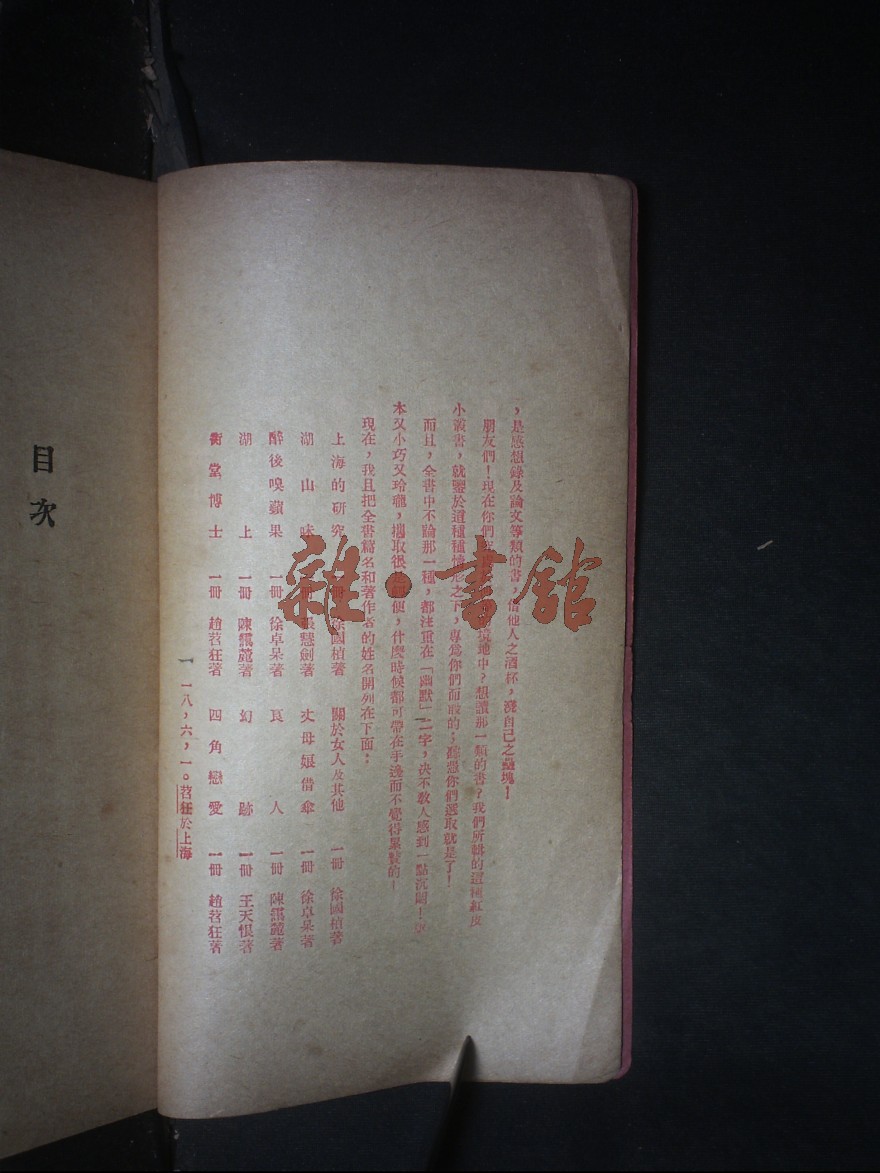 ，是感想錄及論文等類的書，借他人之酒杯，澆自己之壘塊！
朋友們！現在你們境地中？想讀那一類的書？我們所輯的這種紅皮
小叢書，就鑒於這種種情形之下，專爲你們而設的；聽憑你們選取就是了！
而且，全書中不論那一種，都注重在「幽默」二字，决不敎人感到一點沉悶！
本又小巧又玲瓏，攜取很便，什麼時候都可帶在手邊而不覺得累贅的！
現在，我且把全書篇名和著作者的姓名開列在下面：
上海的研究 一冊 徐國楨著 關於女人及其他 一冊 徐國楨著
湖山味 一冊 張慧劍著 丈母娘借傘 一冊 徐卓呆著
醉後嗅蘋果 一冊 徐卓呆著 良人 一冊 陳靄麓著
湖上 一冊 陳靄麓著 幻跡 一冊 王天恨著
衖堂博士 一冊 趙苕狂著 四角戀愛 一冊 趙苕狂著
一八，六，一。苕狂於上海
目次
雜·書館